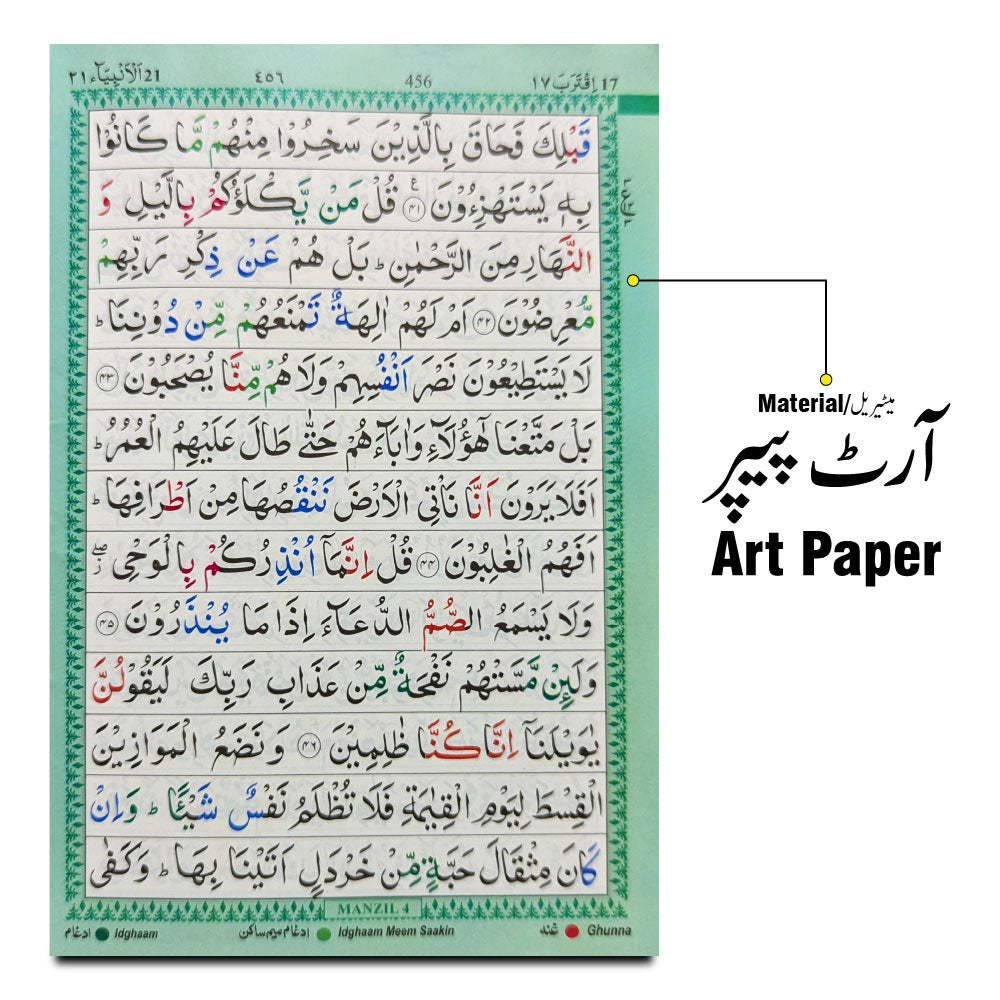 17 اِقْتَرَبَ ١٧ 456 ٤٥٦ 21 اَلْاَنْۢبِيَآء ٢١
قَبْلِكَ فَحَاقَ بِالَّذِيْنَ سَخِرُوْا مِنْهُمْ مَّا كَانُوْا
بِهٖ يَسْتَهْزِءُوْنَ ﴿٤١﴾ ع قُلْ مَنْ يَّكْلَؤُكُمْ بِالَّيْلِ وَ
النَّهَارِ مِنَ الرَّحْمٰنِ ؕ بَلْ هُمْ عَنْ ذِكْرِ رَبِّهِمْ
مُّعْرِضُوْنَ ﴿٤٢﴾ اَمْ لَهُمْ اٰلِهَةٌ تَمْنَعُهُمْ مِّنْ دُوْنِنَا ؕ
لَا يَسْتَطِيْعُوْنَ نَصْرَ اَنْفُسِهِمْ وَلَا هُمْ مِّنَّا يُصْحَبُوْنَ ﴿٤٣﴾
بَلْ مَتَّعْنَا هٰٓؤُلَآءِ وَاٰبَآءَهُمْ حَتّٰى طَالَ عَلَيْهِمُ الْعُمُرُ ؕ
اَفَلَا يَرَوْنَ اَنَّا نَاْتِى الْاَرْضَ نَنْقُصُهَا مِنْ اَطْرَافِهَا ؕ
اَفَهُمُ الْغٰلِبُوْنَ ﴿٤٤﴾ قُلْ اِنَّمَاۤ اُنْذِرُكُمْ بِالْوَحْىِ ۖ ز
وَلَا يَسْمَعُ الصُّمُّ الدُّعَآءَ اِذَا مَا يُنْذَرُوْنَ ﴿٤٥﴾
وَلَئِنْ مَّسَّتْهُمْ نَفْحَةٌ مِّنْ عَذَابِ رَبِّكَ لَيَقُوْلُنَّ
يٰوَيْلَنَاۤ اِنَّا كُنَّا ظٰلِمِيْنَ ﴿٤٦﴾ وَنَضَعُ الْمَوَازِيْنَ
الْقِسْطَ لِيَوْمِ الْقِيٰمَةِ فَلَا تُظْلَمُ نَفْسٌ شَيْـًٔا ؕ وَاِنْ
كَانَ مِثْقَالَ حَبَّةٍ مِّنْ خَرْدَلٍ اَتَيْنَا بِهَا ؕ وَكَفٰى
MANZIL 4
Ghunna غنه Idghaam Meem Saakin ادغام ميم ساكن Idghaam ادغام
Material/میٹیریل
آرٹ پیپر
Art Paper